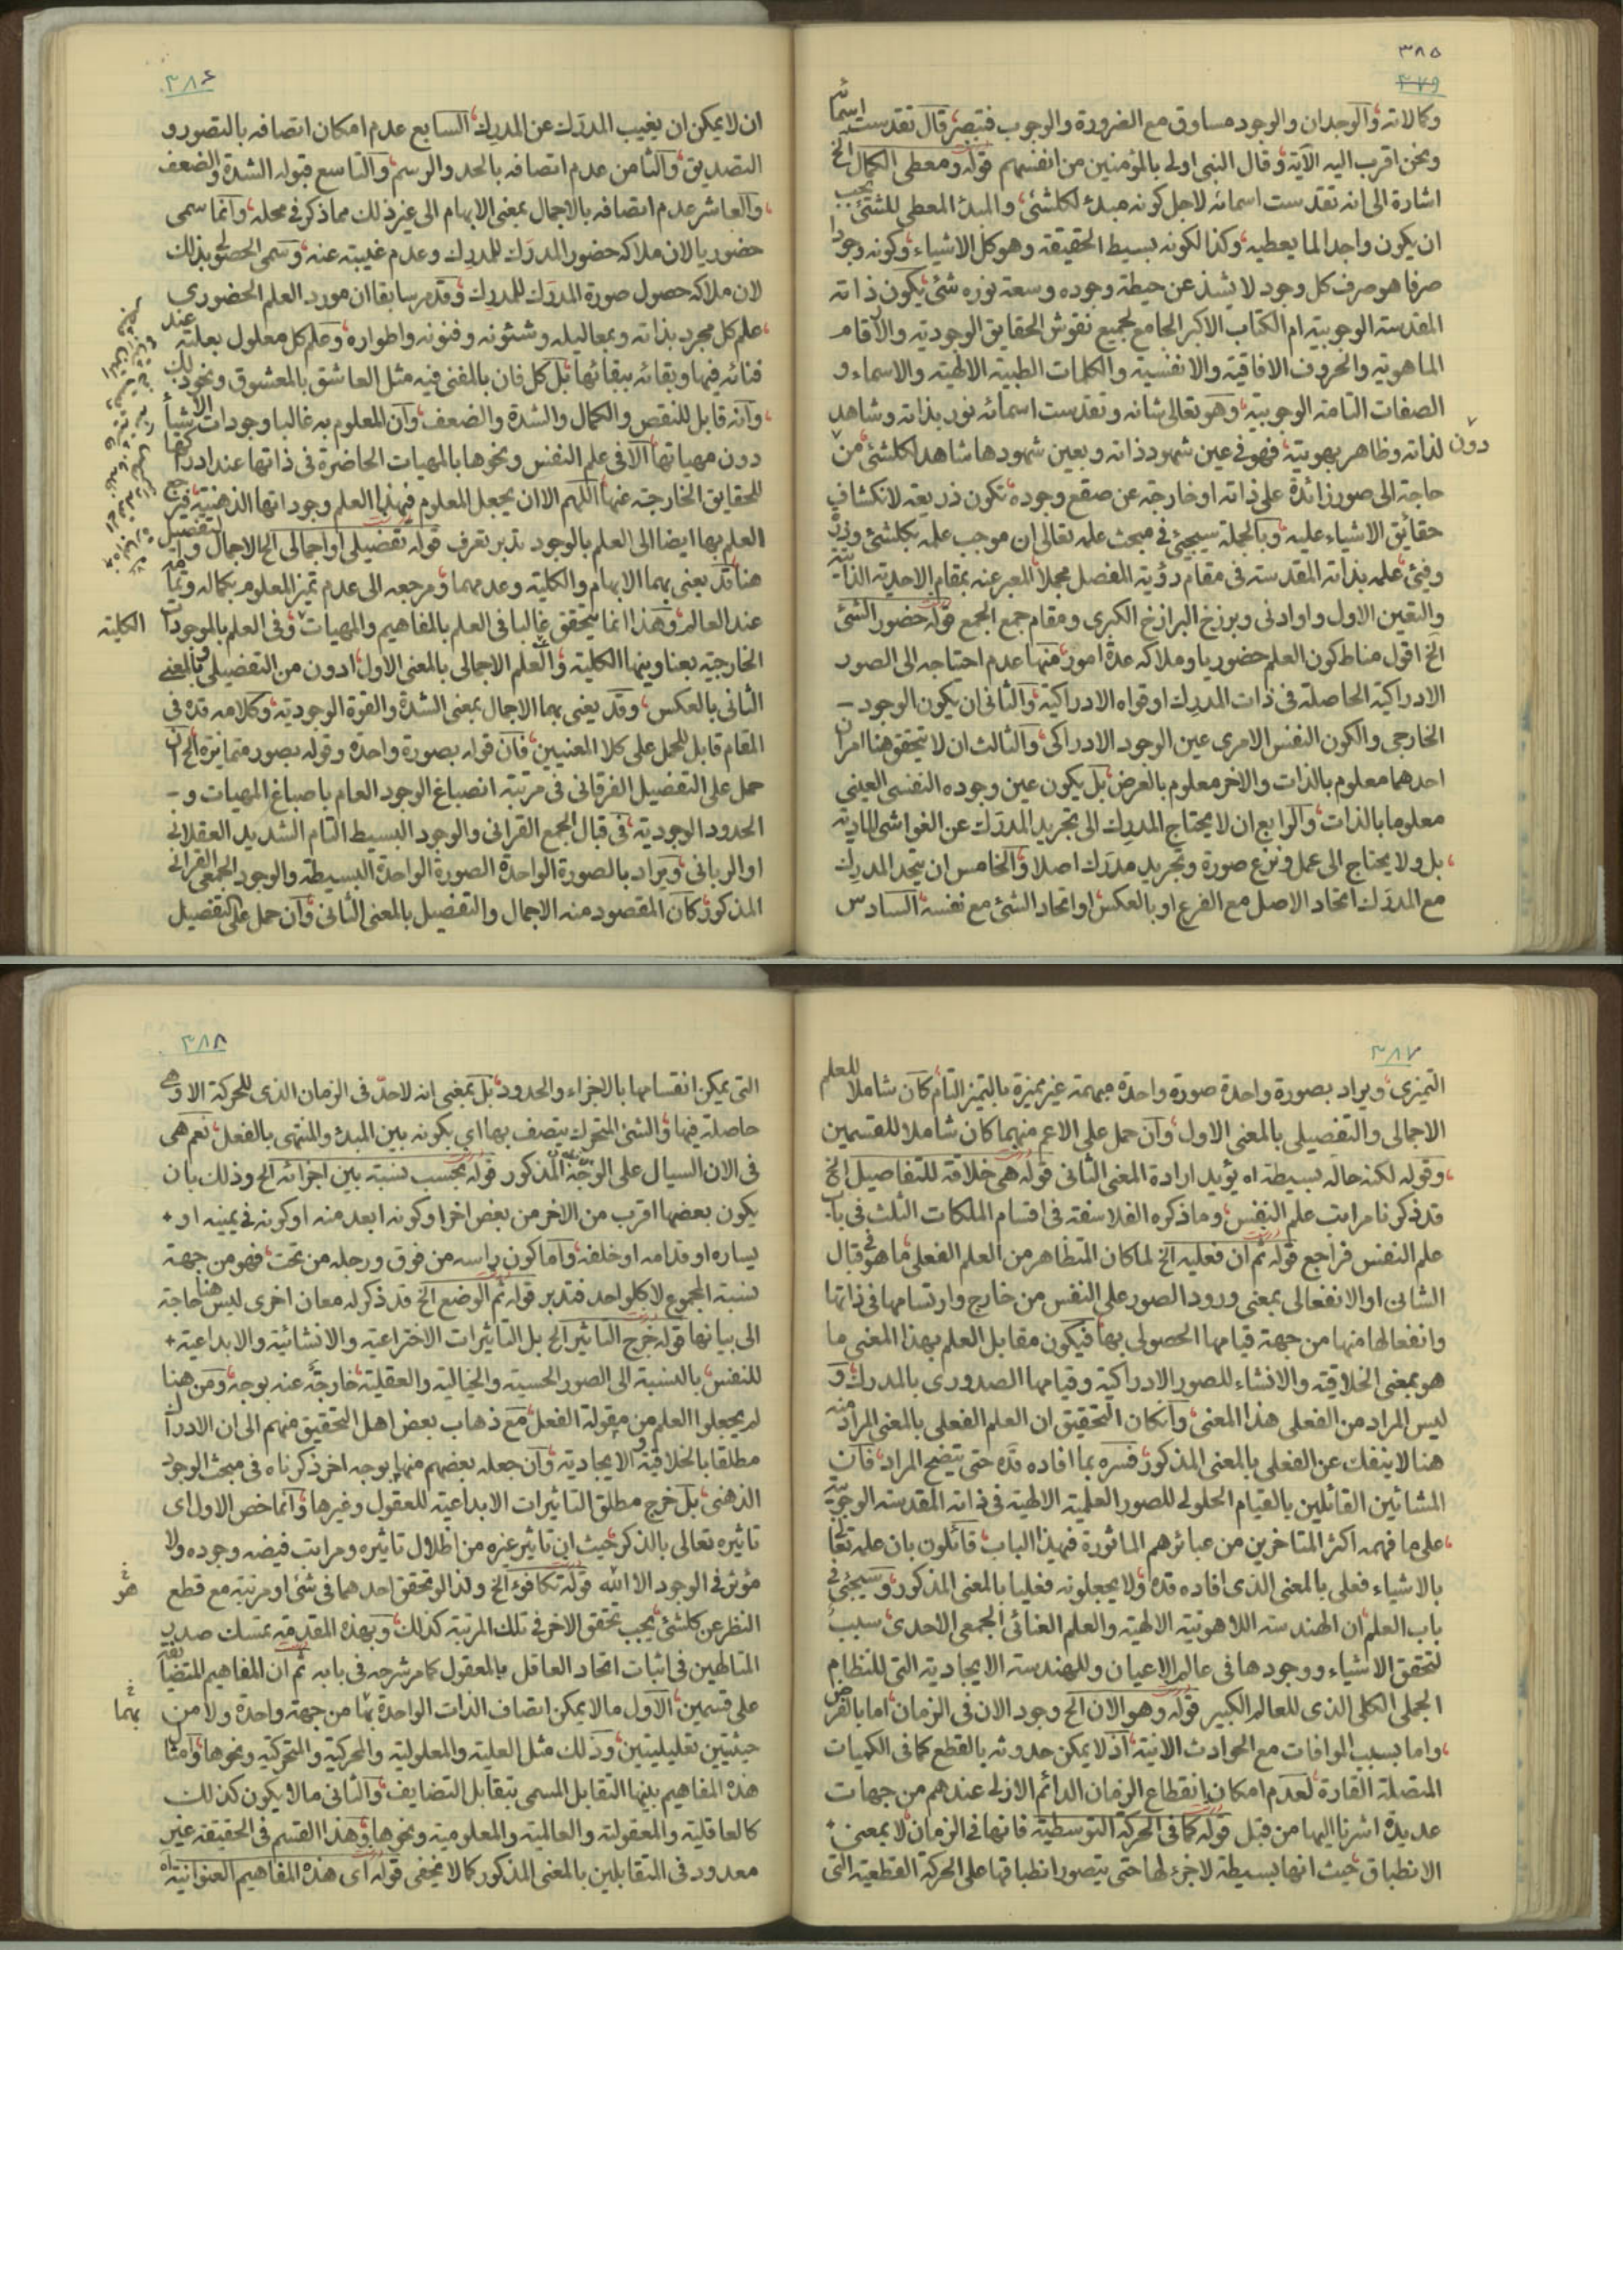 ٣٨٥
٣٧٩
وكمالاته والوجدان والوجود مساوق مع الضرورة والوجوب فتبصر قال تقدست اسمائه
ونحن اقرب اليه الآية وقال النبى اولى بالمؤمنين من انفسهم قوله ومعطى الكمال الخ
اشارة الى انه تقدست اسمائه لاجل كونه مبدء لكلشئ والمبدء المعطى للشئ يجب
ان يكون واجدا لما يعطيه وكذا لكونه بسيط الحقيقة وهو كل الاشياء وكونه وجودا
صرفا هو صرف كل وجود لا يشذ عن حيطة وجوده وسعة نوره شئ يكون ذاته
المقدسة الوجوبية ام الكتاب الاكبر الجامع لجميع نقوش الحقايق الوجودية والارقام
الماهوية والحروف الافاقية والانفسية والكلمات الطيبة الالهية والاسماء و
الصفات التامة الوجوبية وهو تعالى شانه وتقدست اسمائه نور بذاته وشاهد
لذاته وظاهر بهويته فهو فى عين شهود ذاته وبعين شهودها شاهد لكلشئ من
دون
حاجة الى صور زائدة على ذاته او خارجة عن صقع وجوده تكون ذريعة لانكشاف
حقائق الاشياء عليه وبالجملة سيجئ فى مبحث علمه تعالى ان موجب علمه بكلشئ
وفيئ علمه بذاته المقدسة فى مقام رؤية المفصل مجملا المعبر عنه بمقام الاحدية الذاتية
والتعين الاول واو ادنى وبرزخ البرازخ الكبرى ومقام جمع الجمع قوله حضور الشئ
الخ اقول مناط كون العلم حضوريا وملاكه عدة امور منها عدم احتياجه الى الصور
الادراكية الحاصلة فى ذات المدرك او قواه الادراكية والثانى ان يكون الوجود
الخارجى والكون النفس الامرى عين الوجود الادراكى والثالث ان لا يتحقق هنا امران
احدهما معلوم بالذات والاخر معلوم بالعرض بل يكون عين وجوده النفسى العينى
معلوما بالذات والرابع ان لا يحتاج المدرك الى تجريد المدرك عن الغواشى المادية
بل ولا يحتاج الى عمل ونزع صورة وتجريد مدرك اصلا والخامس ان يتحد المدرك
مع المدرك اتحاد الاصل مع الفرع او بالعكس او اتحاد الشئ مع نفسه السادس
٣٨٦
ان لا يمكن ان يغيب المدرك عن المدرك السابع عدم امكان اتصافه بالتصور و
التصديق والثامن عدم اتصافه بالحد والرسم والتاسع قبوله الشدة والضعف
والعاشر عدم اتصافه بالاجمال بمعنى الابهام الى غير ذلك مما ذكر فى محله وانما سمى
حضوريا لان ملاكه حضور المدرك للمدرك وعدم غيبته عنه وسمى الحصولى بذلك
لان ملاكه حصول صورة المدرك للمدرك وقد مر سابقا ان مورد العلم الحضورى
علم كل مجرد بذاته وبمعاليله وشئونه وفنونه واطواره وعلم كل معلول بعلته عند
فنائه فيها وبقائه ببقائها بل كل فان بالمفنى فيه مثل العاشق بالمعشوق ونحو ذلك
وانه قابل للنقص والكمال والشدة والضعف وان المعلوم به غالبا وجودات الاشياء
دون مهياتها الا فى علم النفس ونحوها بالمهيات الحاضرة فى ذاتها عند ادراكها
للحقايق الخارجة عنها اللهم الا ان يجعل المعلوم فى هذا العلم وجوداتها الذهنية فيرجع
العلم بها ايضا الى العلم بالوجود تدبر تعرف قوله تفضيلى او اجمالى الخ الاجمال والتفصيل
هنا قد يعنى بهما الابهام والكلية وعدمهما ومرجعه الى عدم تميز المعلوم بكماله وتمامه
عند العالم وهذا انما يتحقق غالبا فى العلم بالمفاهيم والمهيات وفى العلم بالموجودات
الكلية
الخارجية بعناوينها الكلية والعلم الاجمالى بالمعنى الاول ادون من التفضيلى وبالمعنى
الثانى بالعكس وقد يعنى بهما الاجمال بمعنى الشدة والقوة الوجودية وكلامه قده فى
المقام قابل للحمل على كلا المعنيين فان قوله بصورة واحدة وقوله بصور متمايزة الخ ان
حمل على التفضيل الفرقانى فى مرتبة انصباغ الوجود العام باصباغ المهيات و
الحدود الوجودية فى قبال الجمع القرانى والوجود البسيط التام الشديد العقلانى
او الربانى ويراد بالصورة الواحدة الصورة الواحدة البسيطة والوجود الجمعى القرانى
المذكور كان المقصود منه الاجمال والتفصيل بالمعنى الثانى وان حمل على التفصيل
٣٨٧
التميزى ويراد بصورة واحدة صورة واحدة مبهمة غير مميزة بالتميز التام كان شاملا للعلم
الاجمالى والتفصيلى بالمعنى الاول وان حمل على الاعم منهما كان شاملا للقسمين
وقوله لكنه حالة بسيطة اه يؤيد ارادة المعنى الثانى قوله هى خلاقة للتفاصيل الخ
قد ذكرنا مراتب علم النفس وما ذكره الفلاسفة فى اقسام الملكات الثلث فى باب
علم النفس فراجع قوله ثم ان فعليه الخ لما كان المتظاهر من العلم الفعلى ما هو فى قبال
الشانى او الانفعالى بمعنى ورود الصور على النفس من خارج وارتسامها فى ذاتها
وانفعالها منها من جهة قيامها الحصولى بها فيكون مقابل العلم بهذا المعنى ما
هو بمعنى الخلاقية والانشاء للصور الادراكية وقيامها الصدورى بالمدرك و
ليس المراد من الفعلى هذا المعنى وان كان التحقيق ان العلم الفعلى بالمعنى المراد منه
هنا لا ينفك عن الفعلى بالمعنى المذكور فسره بما افاده قده حتى يتضح المراد فان
المشائين القائلين بالقيام الحلولى للصور العلمية الالهية فى ذاته المقدسة الوجوبية
على ما فهمه اكثر المتاخرين من عبائرهم الماثورة فى هذا الباب قائلون بان علمه تعالى
بالاشياء فعلى بالمعنى الذى افاده قده ولا يجعلونه فعليا بالمعنى المذكور وسيجئ فى
باب العلم ان الهندسة اللاهوتية الالهية والعلم العنائى الجمعى الاحدى سبب
لتحقق الاشياء ووجودها فى عالم الاعيان وللهندسة الايجادية التى للنظام
الجملى الكلى الذى للعالم الكبير قوله وهو الان الخ وجود الان فى الزمان اما بالفرض
واما بسبب الموافات مع الحوادث الانية اذ لا يمكن حدوثه بالقطع كما فى الكميات
المتصلة القارة لعدم امكان انقطاع الزمان الدائم الازلى عندهم من جهات
عديدة اشرنا اليها من قبل قوله كما فى الحركة التوسطية فانها فى الزمان لا بمعنى
الانطباق حيث انها بسيطة لا جزء لها حتى يتصور انطباقها على الحركة القطعية التى
٣٨٨
التى يمكن انقسامها بالاجزاء والحدود بل بمعنى انه لا حد فى الزمان الذى للحركة الا وهى
حاصلة فيها والشئ المتحرك يتصف بها اى بكونه بين المبدء والمنتهى بالفعل نعم هى
فى الان السيال على الوجه المذكور قوله بحسب نسبة بين اجزائه الخ وذلك بان
يكون بعضها اقرب من الاخر من بعض اخر او كونه ابعد منه او كونه فى يمينه او
يساره او قدامه او خلفه واما كون راسه من فوق ورجله من تحت فهو من جهة
نسبة المجموع لا كل واحد فتدبر قوله ثم الوضع الخ قد ذكر له معان اخرى ليس هنا حاجة
الى بيانها قوله خرج التاثير الخ بل التاثيرات الاختراعية والانشائية والابداعية
للنفس بالنسبة الى الصور الحسية والخيالية والعقلية خارجة عنه بوجه ومن هنا
لم يجعلوا العلم من مقولة الفعل مع ذهاب بعض اهل التحقيق منهم الى ان الادراك
مطلقا بالخلاقية والايجادية وان جعله بعضهم منها بوجه اخر ذكرناه فى مبحث الوجود
الذهنى بل خرج مطلق التاثيرات الابداعية للعقول وغيرها وانما خص الاول اى
تاثيره تعالى بالذكر حيث ان تاثير غيره من اظلال تاثيره ومراتب فيضه وجوده ولا
مؤثر فى الوجود الا الله قوله تكافوء الخ ولذا لو تحقق احدهما فى شئ او مرتبة مع قطع
هو
النظر عن كلشئ يجب تحقق الاخر فى تلك المرتبة كذلك وبهذه المقدمة تمسك صدر
المتالهين فى اثبات اتحاد العاقل بالمعقول كما مر شرحه فى بابه ثم ان المفاهيم المتضايفة
على قسمين الاول ما لا يمكن اتصاف الذات الواحدة بها من جهة واحدة ولا من
بهما
حيثيتين تعليليتين وذلك مثل العلية والمعلولية والمحركية والمتحركية ونحوها وامثال
هذه المفاهيم بينها التقابل المسمى بتقابل التضايف والثانى ما لا يكون كذلك
كالعاقلية والمعقولية والعالمية والمعلومية ونحوها وهذا القسم فى الحقيقة غير
معدود فى المتقابلين بالمعنى المذكور كما لا يخفى قوله اى هذه المفاهيم العنوانية اه